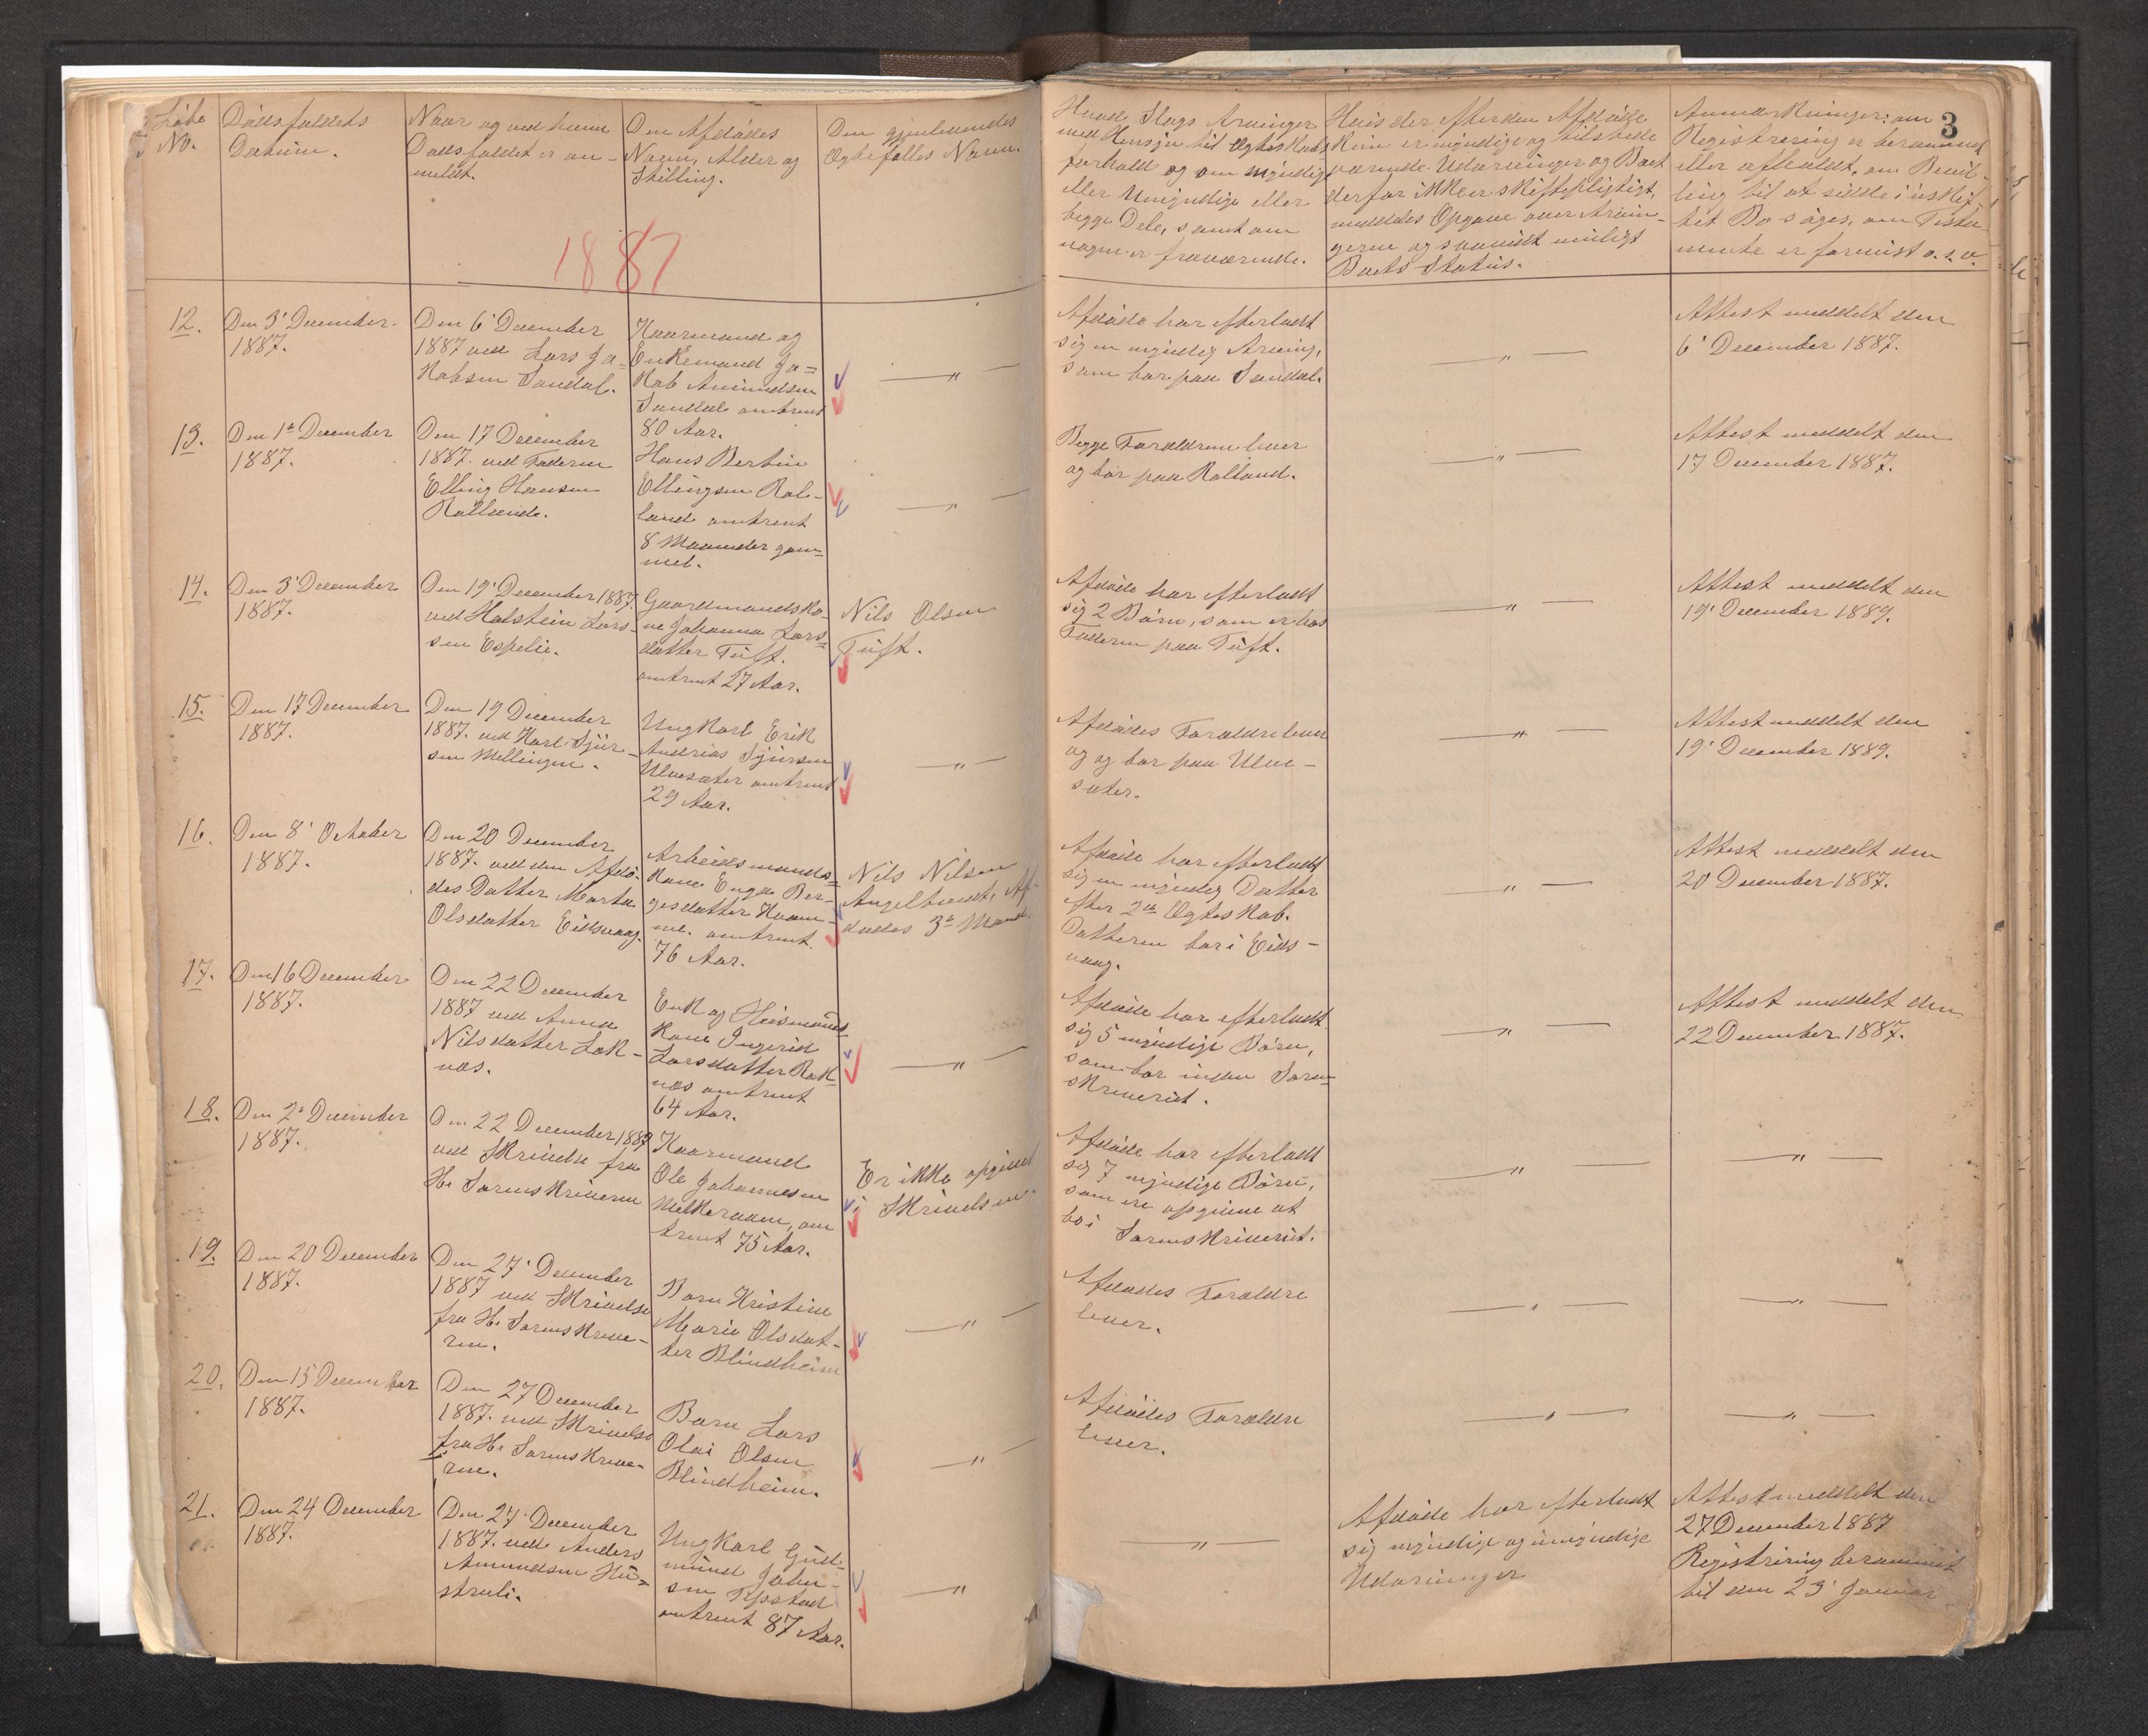 3
Löbe
No.
Dödsfaldets
Datum.
Naar og ved hvem
Dödsfaldet er an-
meldt.
Den Afdödes
Navn, Alder og
Stilling.
Den gjenlevendes
Ægtefælles Navn.
Hvad Slags Arvinger
med Hensyn til Ægteskabs
forhold og om myndige
eller Umyndige eller
begge Dele, samt om
nogen er fraværende.
Hvis der efter den Afdöde
kun er myndige og tilstede
værende Udarvinger og Boet
derfor ikke er skiftepligtigt,
meddeles Opgave over Arvin-
gerne og saavidt muligt
Boets Status.
Anmærkninger: om
Registrering er berammet
eller afholdt, om Bevil-
ling til at sidde i uskif-
tet Bo söges, om Testa-
mente er forevist o.s.v.
1887
12.
Den 3' December
1887.
Den 6' December
1887 ved Lars Ja-
kobsen Sandal.
Kaarmand og
Enkemand Ja-
kob Amundsen
Sandal omtrent
80 Aar.
— " —
Afdöde har efterladt
sig en myndig Arving,
som bor paa Sandal.
— " —
Attest meddelt den
6' December 1887.
13.
Den 1ste December
1887.
Den 17 December
1887. ved Faderen
Elling Hansen
Kalland.
Hans Bertin
Ellingsen Kal-
land omtrent
8 Maaneder gam-
mel.
— " —
Begge Forældrene lever
og bor paa Kalland.
— " —
Attest meddelt den
17 December 1887.
14.
Den 3' December
1887.
Den 19' December 1887.
ved Halstein Lars-
sen Espelie.
Gaardmandsko-
ne Johanna Lars-
datter Tuft.
omtrent 27 Aar.
Nils Olsen
Tuft.
Afdöde har efterladt
sig 2 Börn, som er hos
Faderen paa Tuft.
— " —
Attest meddelt den
19' December 1889.
15.
Den 17 December
1887.
Den 19 December
1887. ved Karl Sjur-
sen Mellingen.
Ungkarl Erik
Andrias Sjursen
Ulvesæter omtrent
29 Aar.
— " —
Afdödes Forældre lever
og og bor paa Ulve-
sæter.
— " —
Attest meddelt den
19' December 1889.
16.
Den 8' October
1887.
Den 20 December
1887. ved den Afdö-
des Datter Marta
Olsdatter Eidsvaag.
Arbeidsmands-
kone Inga Ber-
gesdatter
omtrent
76 Aar.
Nils Nilsen
Angeltveit, Af-
dödes 3die Mand.
Afdöde har efterladt
sig en myndig Datter
efter 2det Ægteskab.
Datteren bor i Eids-
vaag.
— " —
Attest meddelt den
20 December 1887.
17.
Den 16 December
1887.
Den 22 December
1887 ved Anna
Nilsdatter Lok-
næs.
Enk og Husmands
kone Ingerid
Larsdatter Rok-
næs omtrent
64 Aar.
— " —
Afdöde har efterladt
sig 5 myndige Börn,
som bor inden Soren-
skriveriet.
— " —
Attest meddelt den
22 December 1887.
18.
Den 2' December
1887.
Den 22 December 1887
ved Skrivelse fra
Hr. Sorenskriveren
Kaarmand
Ole Johannesen
om
trent 75 Aar.
Er ikke opgivet
i Skrivelsen.
Afdöde har efterladt
sig 7 myndige Börn,
som ere opgivne at
bo i Sorenskriveriet.
— " —
— " —
19.
Den 20 December
1887.
Den 27' December
1887 ved Skrivelse
fra Hr. Sorenskrive-
ren.
Barn Kristine
Marie Olsdat-
ter Blindheim
— " —
Afdödes Forældre
lever.
— " —
— " —
20.
Den 15 December
1887.
Den 27 December
1887. ved Skrivelse
fra Hr. Sorenskrive-
ren.
Barn Lars
Olai Olsen
Blindheim.
— " —
Afdödes Forældre
lever.
— " —
— " —
21.
Den 24 December
1887.
Den 27 December
1887. ved Anders
Amundsen Hu-
streli.
Ungkarl Gud-
mund John-
sen
omtrent 87 Aar.
— " —
— " —
Afdöde har efterladt
sig myndige og umyndige
Udarvinger
Attest meddelt den
27 December 1887
Registrering berammet
til den 23' Januar